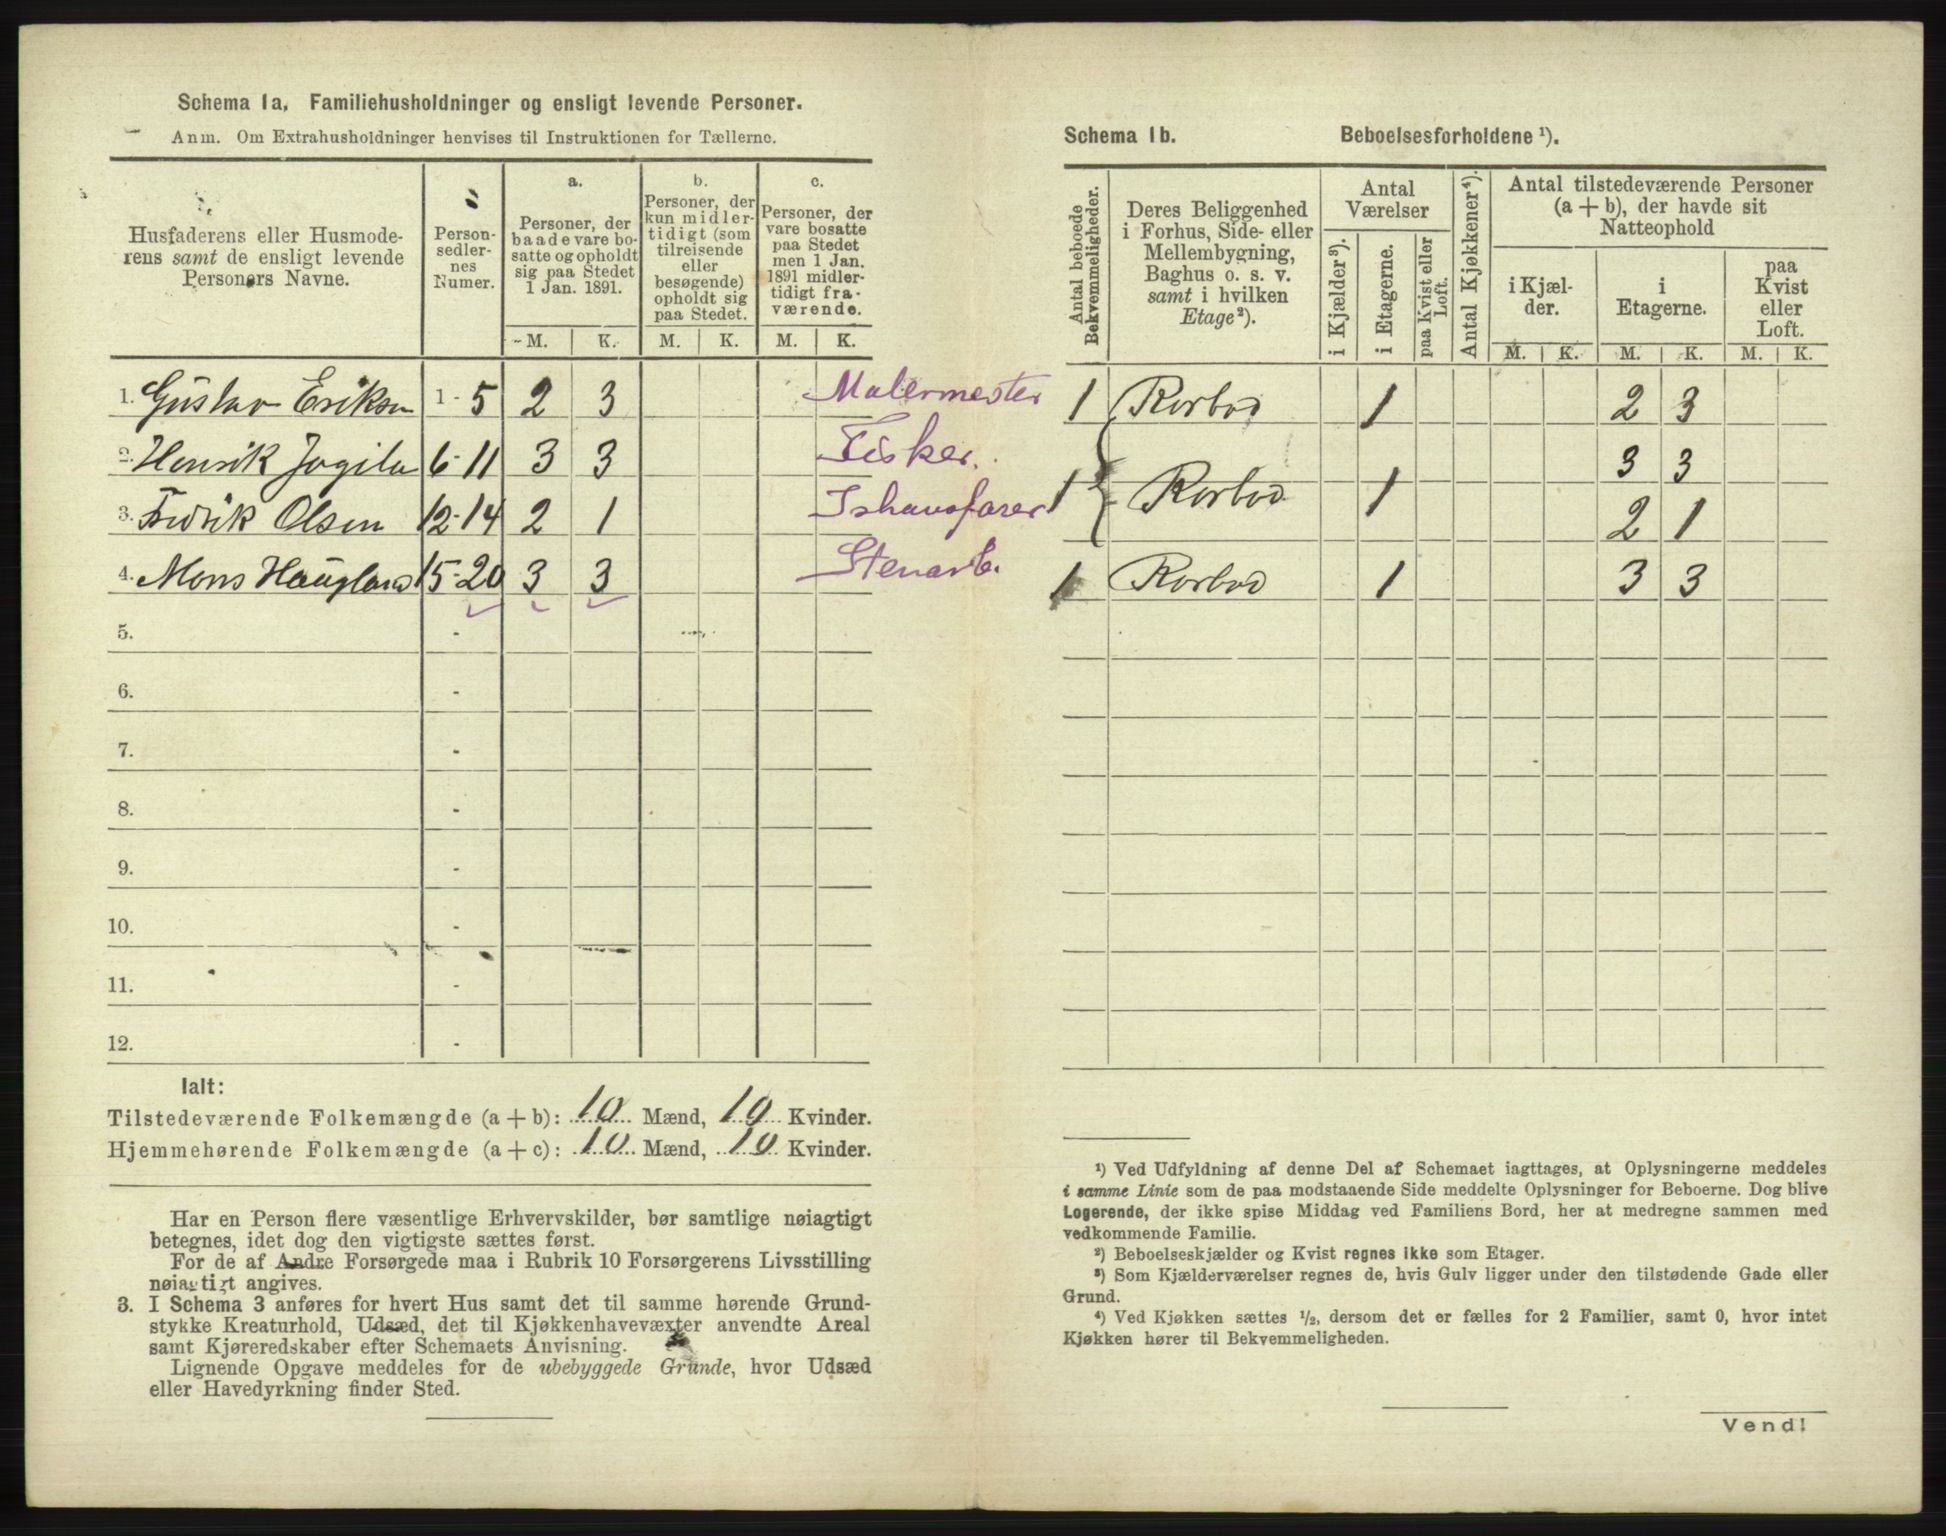 Schema 1a, Familiehusholdninger og ensligt levende Personer.
Anm. Om Extrahusholdninger henvises til Instruktionen for Tællerne.
Husfaderens eller Husmode-
rens samt de ensligt levende
Personers Navne.
Person-
sedler-
nes
Numer.
a.
Personer, der
baade vare bo-
satte og opholdt
sig paa Stedet
1 Jan. 1891.
b.
Personer, der
kun midler-
tidigt (som
tilreisende
eller
besøgende)
opholdt sig
paa Stedet.
c.
Personer, der
vare bosatte
paa Stedet
men 1 Jan.
1891 midler-
tidigt fra-
værende.
M. K. M. K. M. K.
1. Gustav Eriksen 1 - 5 2 3 Malermester
2. Henrik Jogila 6 - 11 3 3 Fisker.
3. Fredrik Olsen 12 - 14 2 1 Ishavsfarer
4. Mons Haugland 15 - 20 3 3 Stenarb.
5. -
6. -
7. -
8. -
9. -
10. -
11. -
12. -
Ialt:
Tilstedeværende Folkemængde (a + b): 10 Mænd, 10 Kvinder.
Hjemmehørende Folkemængde (a + c): 10 Mænd, 10 Kvinder.
Har en Person flere væsentlige Erhvervskilder, bør samtlige nøiagtigt
betegnes, idet dog den vigtigste sættes først.
For de af Andre Forsørgede maa i Rubrik 10 Forsørgerens Livsstilling
nøiagtigt angives.
3. I Schema 3 anføres for hvert Hus samt det til samme hørende Grund-
stykke Kreaturhold, Udsæd, det til Kjøkkenhavevæxter anvendte Areal
samt Kjøreredskaber efter Schemaets Anvisning.
Lignende Opgave meddeles for de ubebyggede Grunde, hvor Udsæd
eller Havedyrkning finder Sted.
Schema 1b. Beboelsesforholdene ¹).
Antal beboede
Bekvemmeligheder.
Deres Beliggenhed
i Forhus, Side- eller
Mellembygning,
Baghus o. s. v.
samt i hvilken
Etage²).
Antal
Værelser
i Kjælder³).
i Etagerne.
paa Kvist eller
Loft.
Antal Kjøkkener⁴).
Antal tilstedeværende Personer
(a + b), der havde sit
Natteophold
i Kjæl-
der.
i
Etagerne.
paa
Kvist
eller
Loft.
M. K. M. K. M. K.
1 Rorbod 1 2 3
3 3
1 Rorbod 1
2 1
1 Rorbod 1 3 3
¹) Ved Udfyldning af denne Del af Schemaet iagttages, at Oplysningerne meddeles
i samme Linie som de paa modstaaende Side meddelte Oplysninger for Beboerne. Dog blive
Logerende, der ikke spise Middag ved Familiens Bord, her at medregne sammen med
vedkommende Familie.
²) Beboelseskjælder og Kvist regnes ikke som Etager.
³) Som Kjælderværelser regnes de, hvis Gulv ligger under den tilstødende Gade eller
Grund.
⁴) Ved Kjøkken sættes ½, dersom det er fælles for 2 Familier, samt 0, hvor intet
Kjøkken hører til Bekvemmeligheden.
Vend!